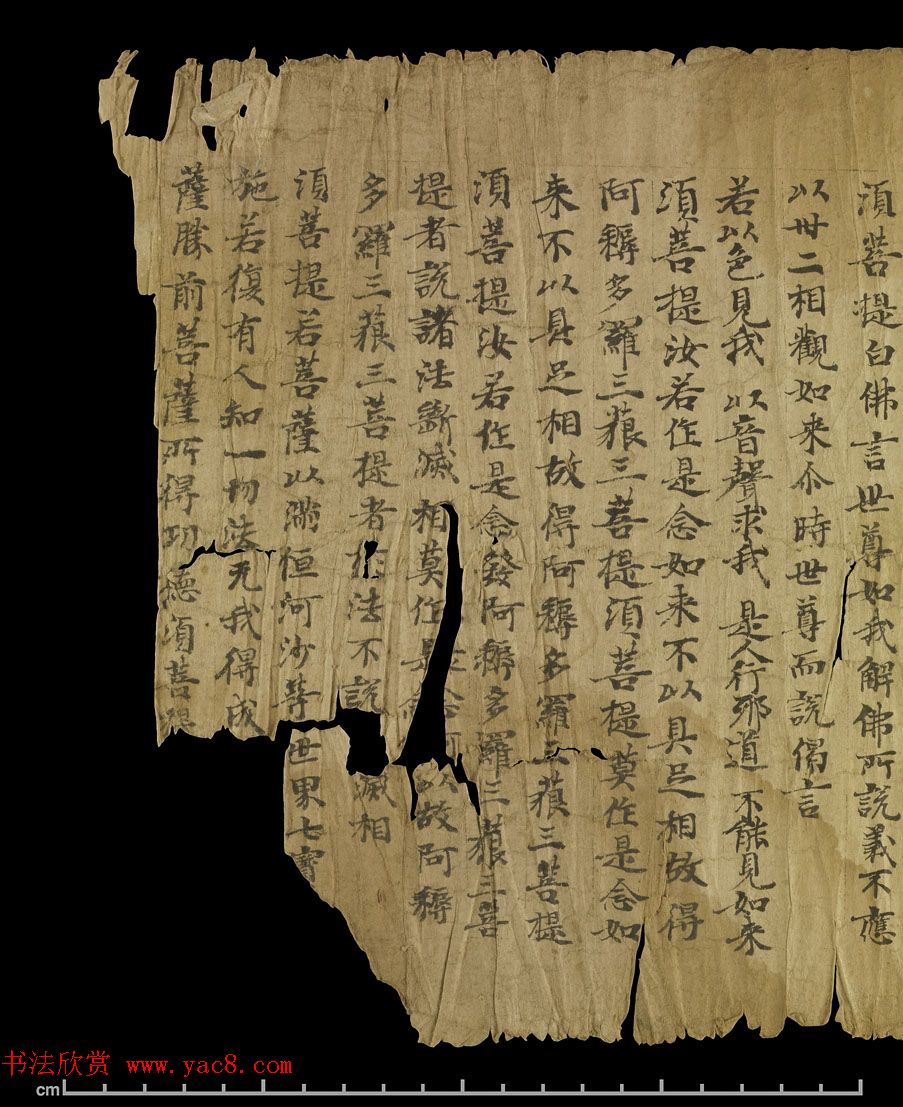 須菩提白佛言世尊如我解佛所說義不應
以卅二相觀如来尒時世尊而說偈言
若以色見我 以音聲求我 是人行邪道 不能見如来
須菩提汝若作是念如来不以具足相故得
阿耨多羅三藐三菩提須菩提莫作是念如
来不以具足相故得阿耨多羅三藐三菩提
須菩提汝若作是念發阿耨多羅三藐三菩
提者說諸法斷滅相莫作是念何以故阿耨
多羅三藐三菩提者於法不說 滅相
須菩提若菩薩以滿恒河沙等世界七寶
施若復有人知一切法无我得成
薩勝前菩薩所得功德須菩提
书法欣赏 www.yac8.com
cm